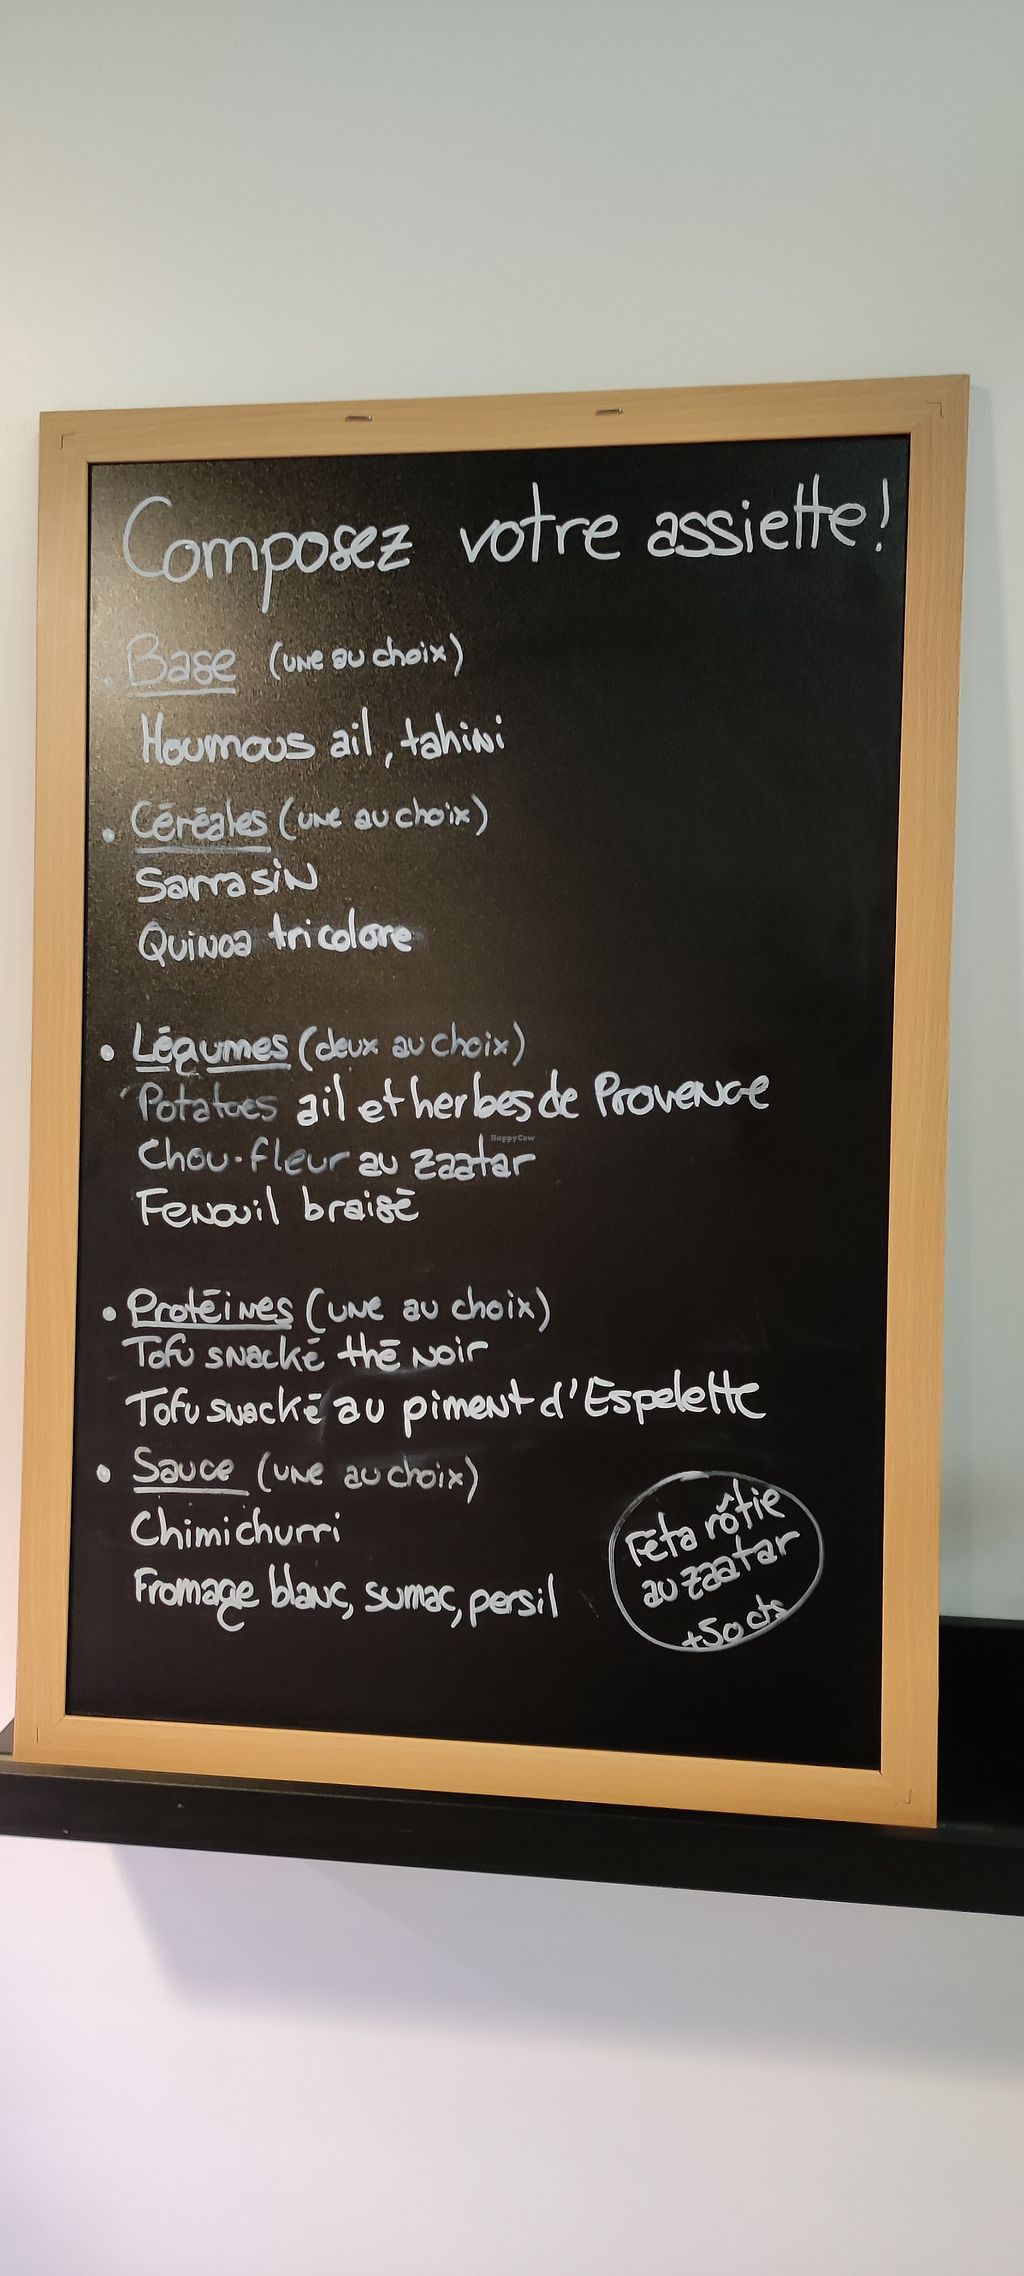 Composez votre assiette!
. Base (une au choix)
Houmous ail, tahini
• Céréales (une au choix)
Sarrasin
Quinoa tricolore
• Légumes (deux au choix)
Potatoes ail et herbes de Provence
HappyCow
Chou-fleur au zaatar
Fenouil braisé
• Protéines (une au choix)
Tofu snacké thé noir
Tofu snacké au piment d'Espelette
• Sauce (une au choix)
Chimichurri
Fromage blanc, sumac, persil
Féta rôtie
au zaatar
+50 cts